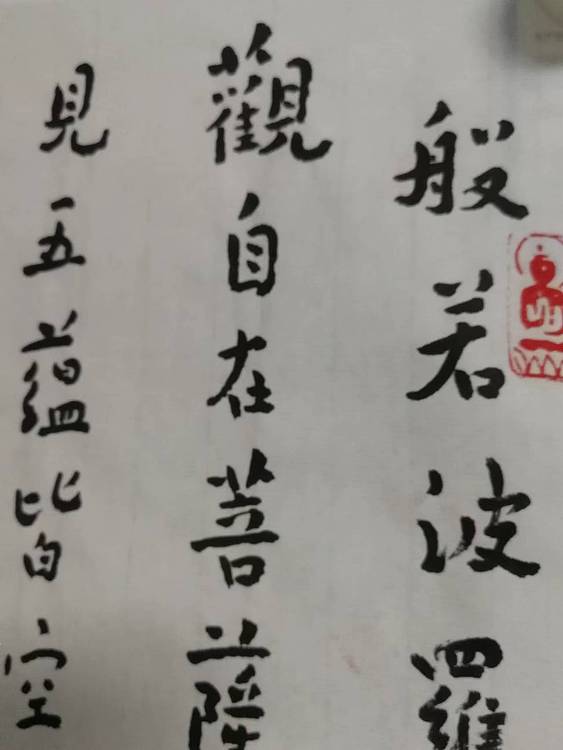 般若波羅
觀自在菩薩
見五蘊皆空